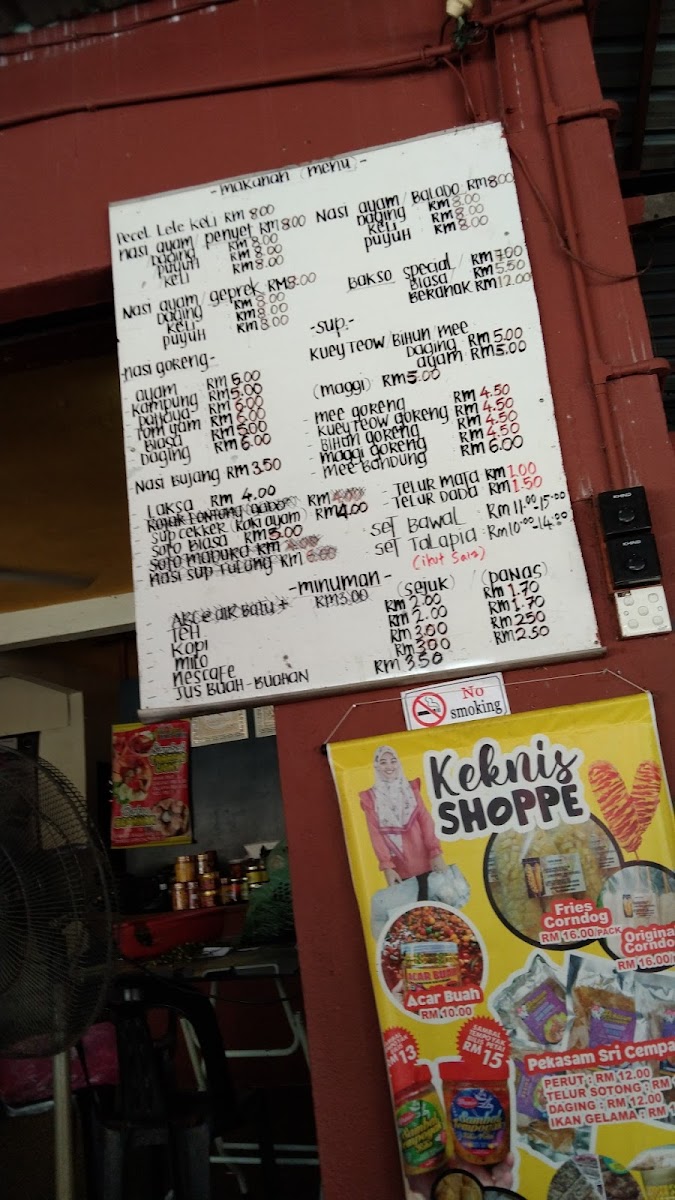 - makanan (menu) -
Pecel Lele Keli RM 8.00
Nasi ayam / penyet RM 8.00
Daging RM 8.00
Puyuh RM 8.00
Keli RM 8.00
Nasi ayam / geprek RM 8.00
Daging RM 8.00
Keli RM 8.00
Puyuh RM 8.00
- Nasi Goreng -
Ayam RM 6.00
- Kampung RM 5.00
- Pattaya RM 6.00
- Tom Yam RM 6.00
- Biasa RM 5.00
- Daging RM 6.00
Nasi Bujang RM 3.50
Laksa RM 4.00
Rojak Lontong
Sup Cekker (Kaki ayam) RM 4.00
Soto Biasa RM 5.00
Soto Madura RM
Nasi Sup Tulang RM 6.00
Nasi Ayam / Balado RM 8.00
Daging RM 8.00
Keli RM 8.00
Puyuh RM 8.00
Bakso Special RM 7.00
Biasa RM 5.50
Beranak RM 12.00
- Sup. -
Kuey Teow / Bihun Mee
Daging RM 5.00
Ayam RM 5.00
(Maggi) RM 5.00
- Mee Goreng RM 4.50
- Kuey Teow Goreng RM 4.50
- Bihun Goreng RM 4.50
- Maggi Goreng RM 4.50
- Mee Bandung RM 6.00
- Telur Mata RM 1.00
- Telur Dada RM 1.50
Set Bawal RM 11.00 - 15.00
Set Talapia RM 10.00 - 14.00
(ikut saiz)
- Minuman -
(Sejuk) (Panas)
RM 3.00
- Teh RM 2.00 RM 1.70
- Kopi RM 2.00 RM 1.70
- Milo RM 3.00 RM 2.50
- Nescafe RM 3.00 RM 2.50
- Jus Buah-Buahan RM 3.50
KHIND
KHIND
No
smoking
Keknis
SHOPPE
Fries
Corndog
RM 16.00/PACK
Original
Corndo
RM 16.00/
ACAR BUAH
Acar Buah
RM 10.00
SAMBAL
TEMPOYAK
BILIS PETAI
RM 15
13
Sambal
Tempoyak
Pekasam Sri Cempa
PERUT : RM 12.00
TELUR SOTONG : RM
DAGING : RM 12.00
IKAN GELAMA : RM